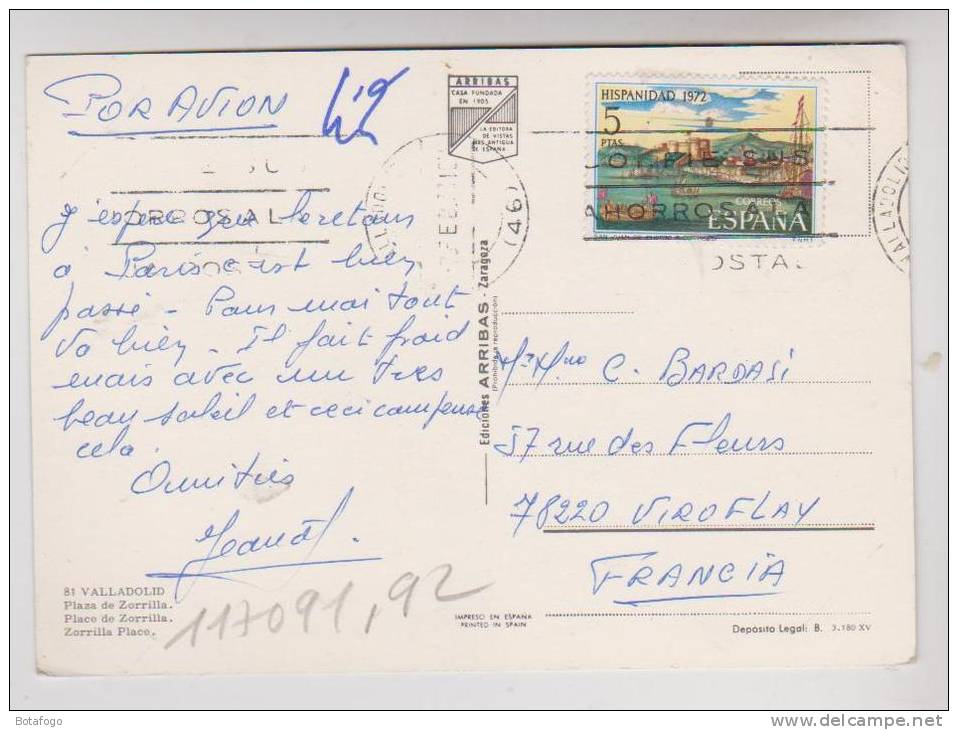 POR AVION
ARRIBAS
CASA FUNDADA
EN 1905
LA EDITORA
DE VISTAS
MAS ANTIGUA
DE ESPAÑA
HISPANIDAD 1972
5
PTAS
CORREOS
ESPAÑA
AHORROS A LA
OSTAL
ORROS A L
(46)
VALLADOLID
J'espère que le retour
à Paris c'est bien
passé - Pour moi tout
va bien - Il fait froid
mais avec un tres
beau soleil et ceci compense
cela.
Amitiés
81 VALLADOLID
Plaza de Zorrilla.
Place de Zorrilla.
Zorrilla Place.
117091,92
Ediciones ARRIBAS - Zaragoza
(Prohibida la reproducción)
C. BARDASI
57 rue des Fleurs
78220 VIROFLAY
FRANCIA
IMPRESO EN ESPAÑA
PRINTED IN SPAIN
Depósito Legal: B. 3.180 XV
Botafogo
www.delcampe.net